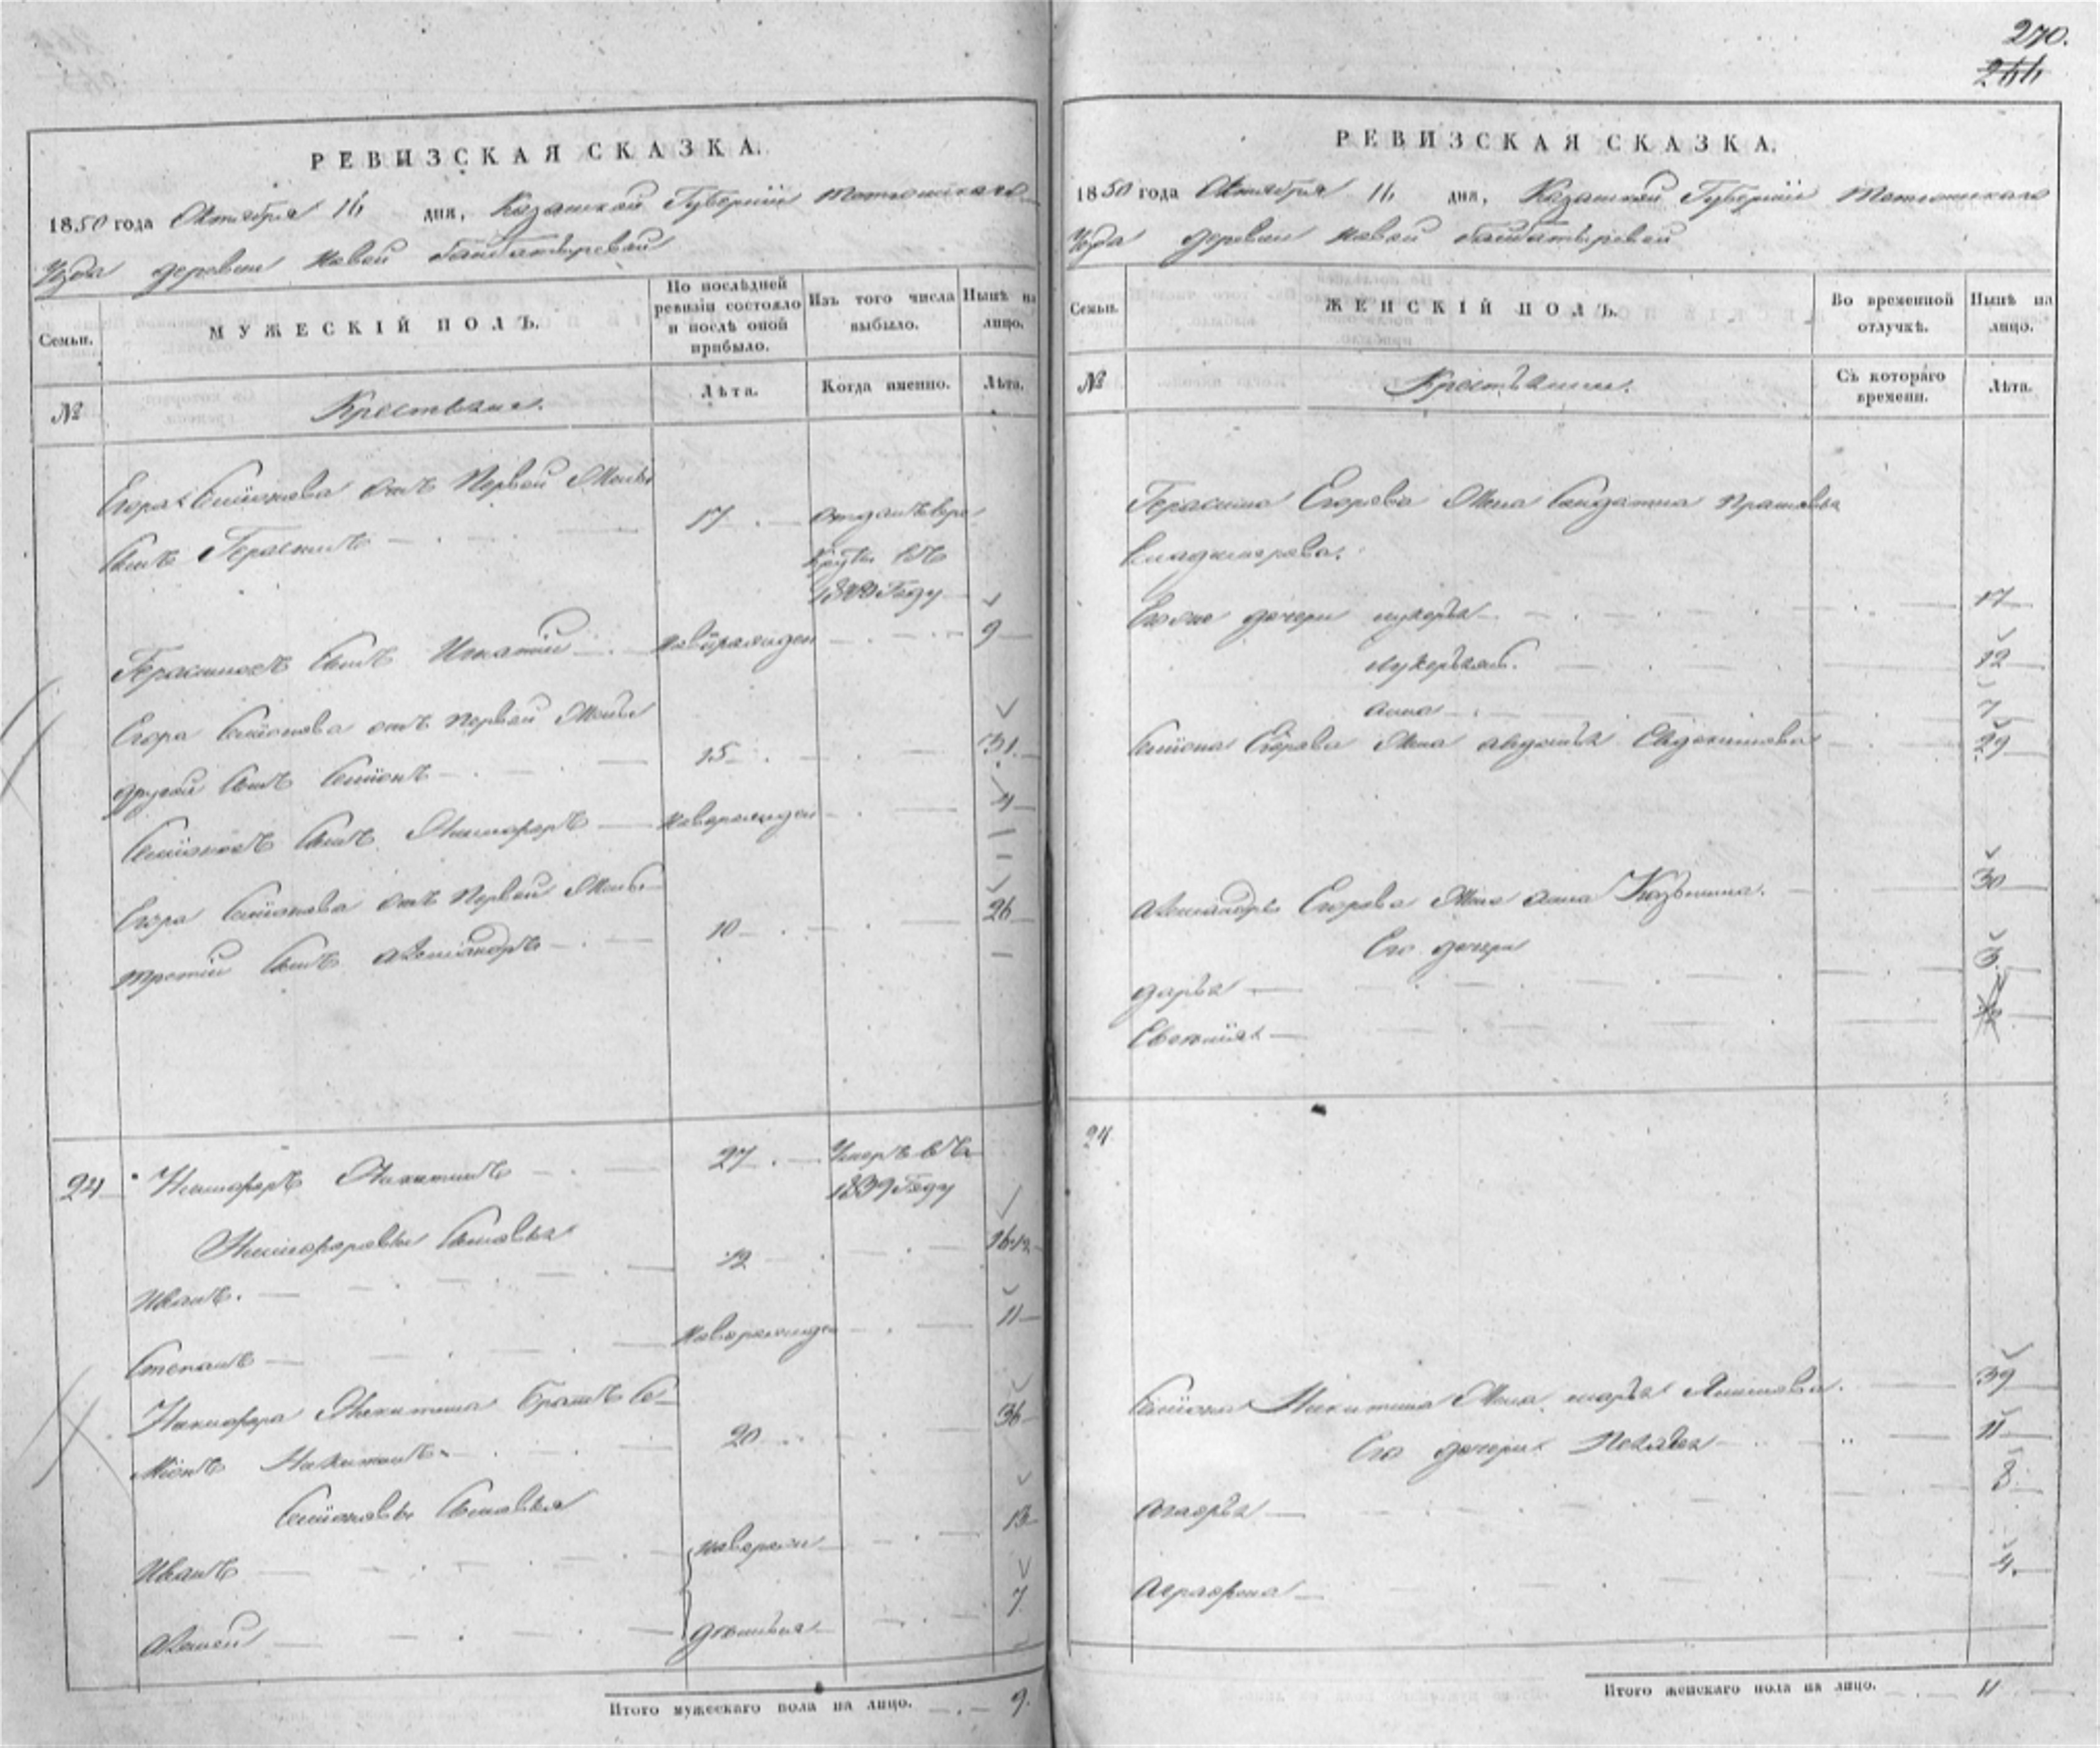 270.
266
РЕВИЗСКАЯ СКАЗКА.
1850 года Октября 16 дня, Казанской Губернии Тетюшскаго
Уезда деревни Новой Байбатыревой
Семьи.
МУЖЕСКІЙ ПОЛЪ.
По послѣдней ревизіи состояло и послѣ оной прибыло.
Изъ того числа выбыло.
Нынѣ на лицо.
№
Крестьяне.
Лѣта.
Когда именно.
Лѣта.
Егора Семіонова отъ первой жены
Сынъ Герасимъ 17 отданъ въ ре
круты въ
Году
Герасимовъ Сынъ Игнатій новорожден 9
Егора Семіонова отъ первой жены
другой Сынъ Семіонъ 15 31.
Семіоновъ Сынъ Никифоръ новорожден 4
Егора Семіонова отъ первой жены
третій Сынъ Александръ 10 26
24 Никифоръ Никитинъ 27 Умеръ въ
1839 Году
Никифоровы Сыновья
Иванъ. 12
Степанъ новорожден 11
Никифора Никитина братъ Се-
міонъ Никитинъ 20 36
Семіоновы Сыновья
Иванъ новорож 13
Алексей денныя 7
Итого мужескаго пола на лицо. 9.
РЕВИЗСКАЯ СКАЗКА.
1850 года Октября 16 дня, Казанской Губерніи Тетюшскаго
Уезда деревни Новой Байбатыревой
Семьи.
ЖЕНСКІЙ ПОЛЪ.
Во временной отлучкѣ.
Нынѣ на лицо.
№
Крестьяне.
Съ котораго времени.
Лѣта.
Герасима Егорова жена Солдатка Прасковья
Владимерова.
Его же дочери лукерья 17
Лукерья 12
Анна 7
Семіона Егорова жена авдотья Евдокимова 29
Александра Егорова жена Анна Козьмина. 30
Его дочери
дарья 3
Евгенія
24
Семіона Никитина жена марья 39
Его дочери Пелагея 11
8
Аграфена 4.
Итого женскаго пола на лицо. 11